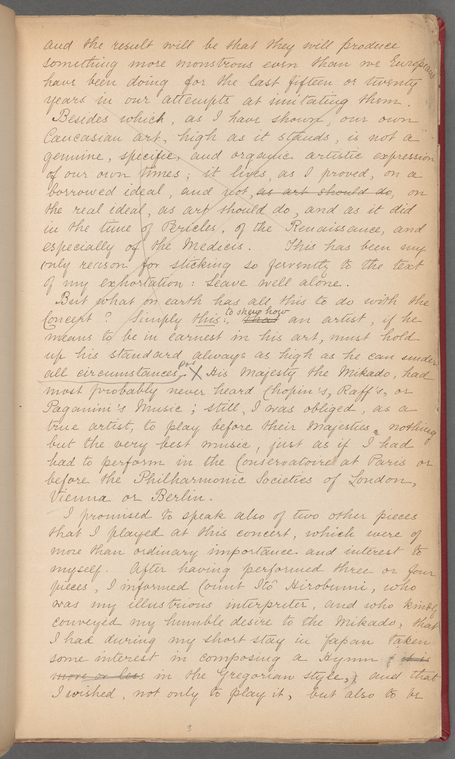 and the result will be that they will produce
something more monstrous even than we Europeans
have been doing for the last fifteen or twenty
years in our attempts at imitating them.
Besides which, as I have shown, our own
Caucasian art, high as it stands, is not a
genuine, specific, and organic artistic expression
of our own times; it lives, as I proved, on a
borrowed ideal, and not, as art should do, on
the real ideal, as art should do, and as it did
in the time of Pericles, of the Renaissance, and
especially of the Medecis. This has been my
only reason for sticking so fervently to the text
of my exhortation: Leave well alone.
But what on earth has all this to do with the
Concert? Simply this: to show how an artist, if he
means to be in earnest in his art, must hold
up his standard always as high as he can under
all circumstances. X His Majesty the Mikado, had
most probably never heard Chopin's, Raff's, or
Paganini's Music; still, I was obliged, as a
true artist, to play before their Majesties nothing
but the very best music, just as if I had
had to perform in the Conservatoire at Paris or
before the Philharmonic Societies of London,
Vienna or Berlin.
I promised to speak also of two other pieces
that I played at this concert, which were of
more than ordinary importance and interest to
myself. After having performed three or four
pieces, I informed Count Itô Hirobumi, who
was my illustrious interpreter, and who kindly
conveyed my humble desire to the Mikado, that
I had during my short stay in Japan taken
some interest in composing a Hymn
more or less in the Gregorian style, and that
I wished, not only to play it, but also to be
3